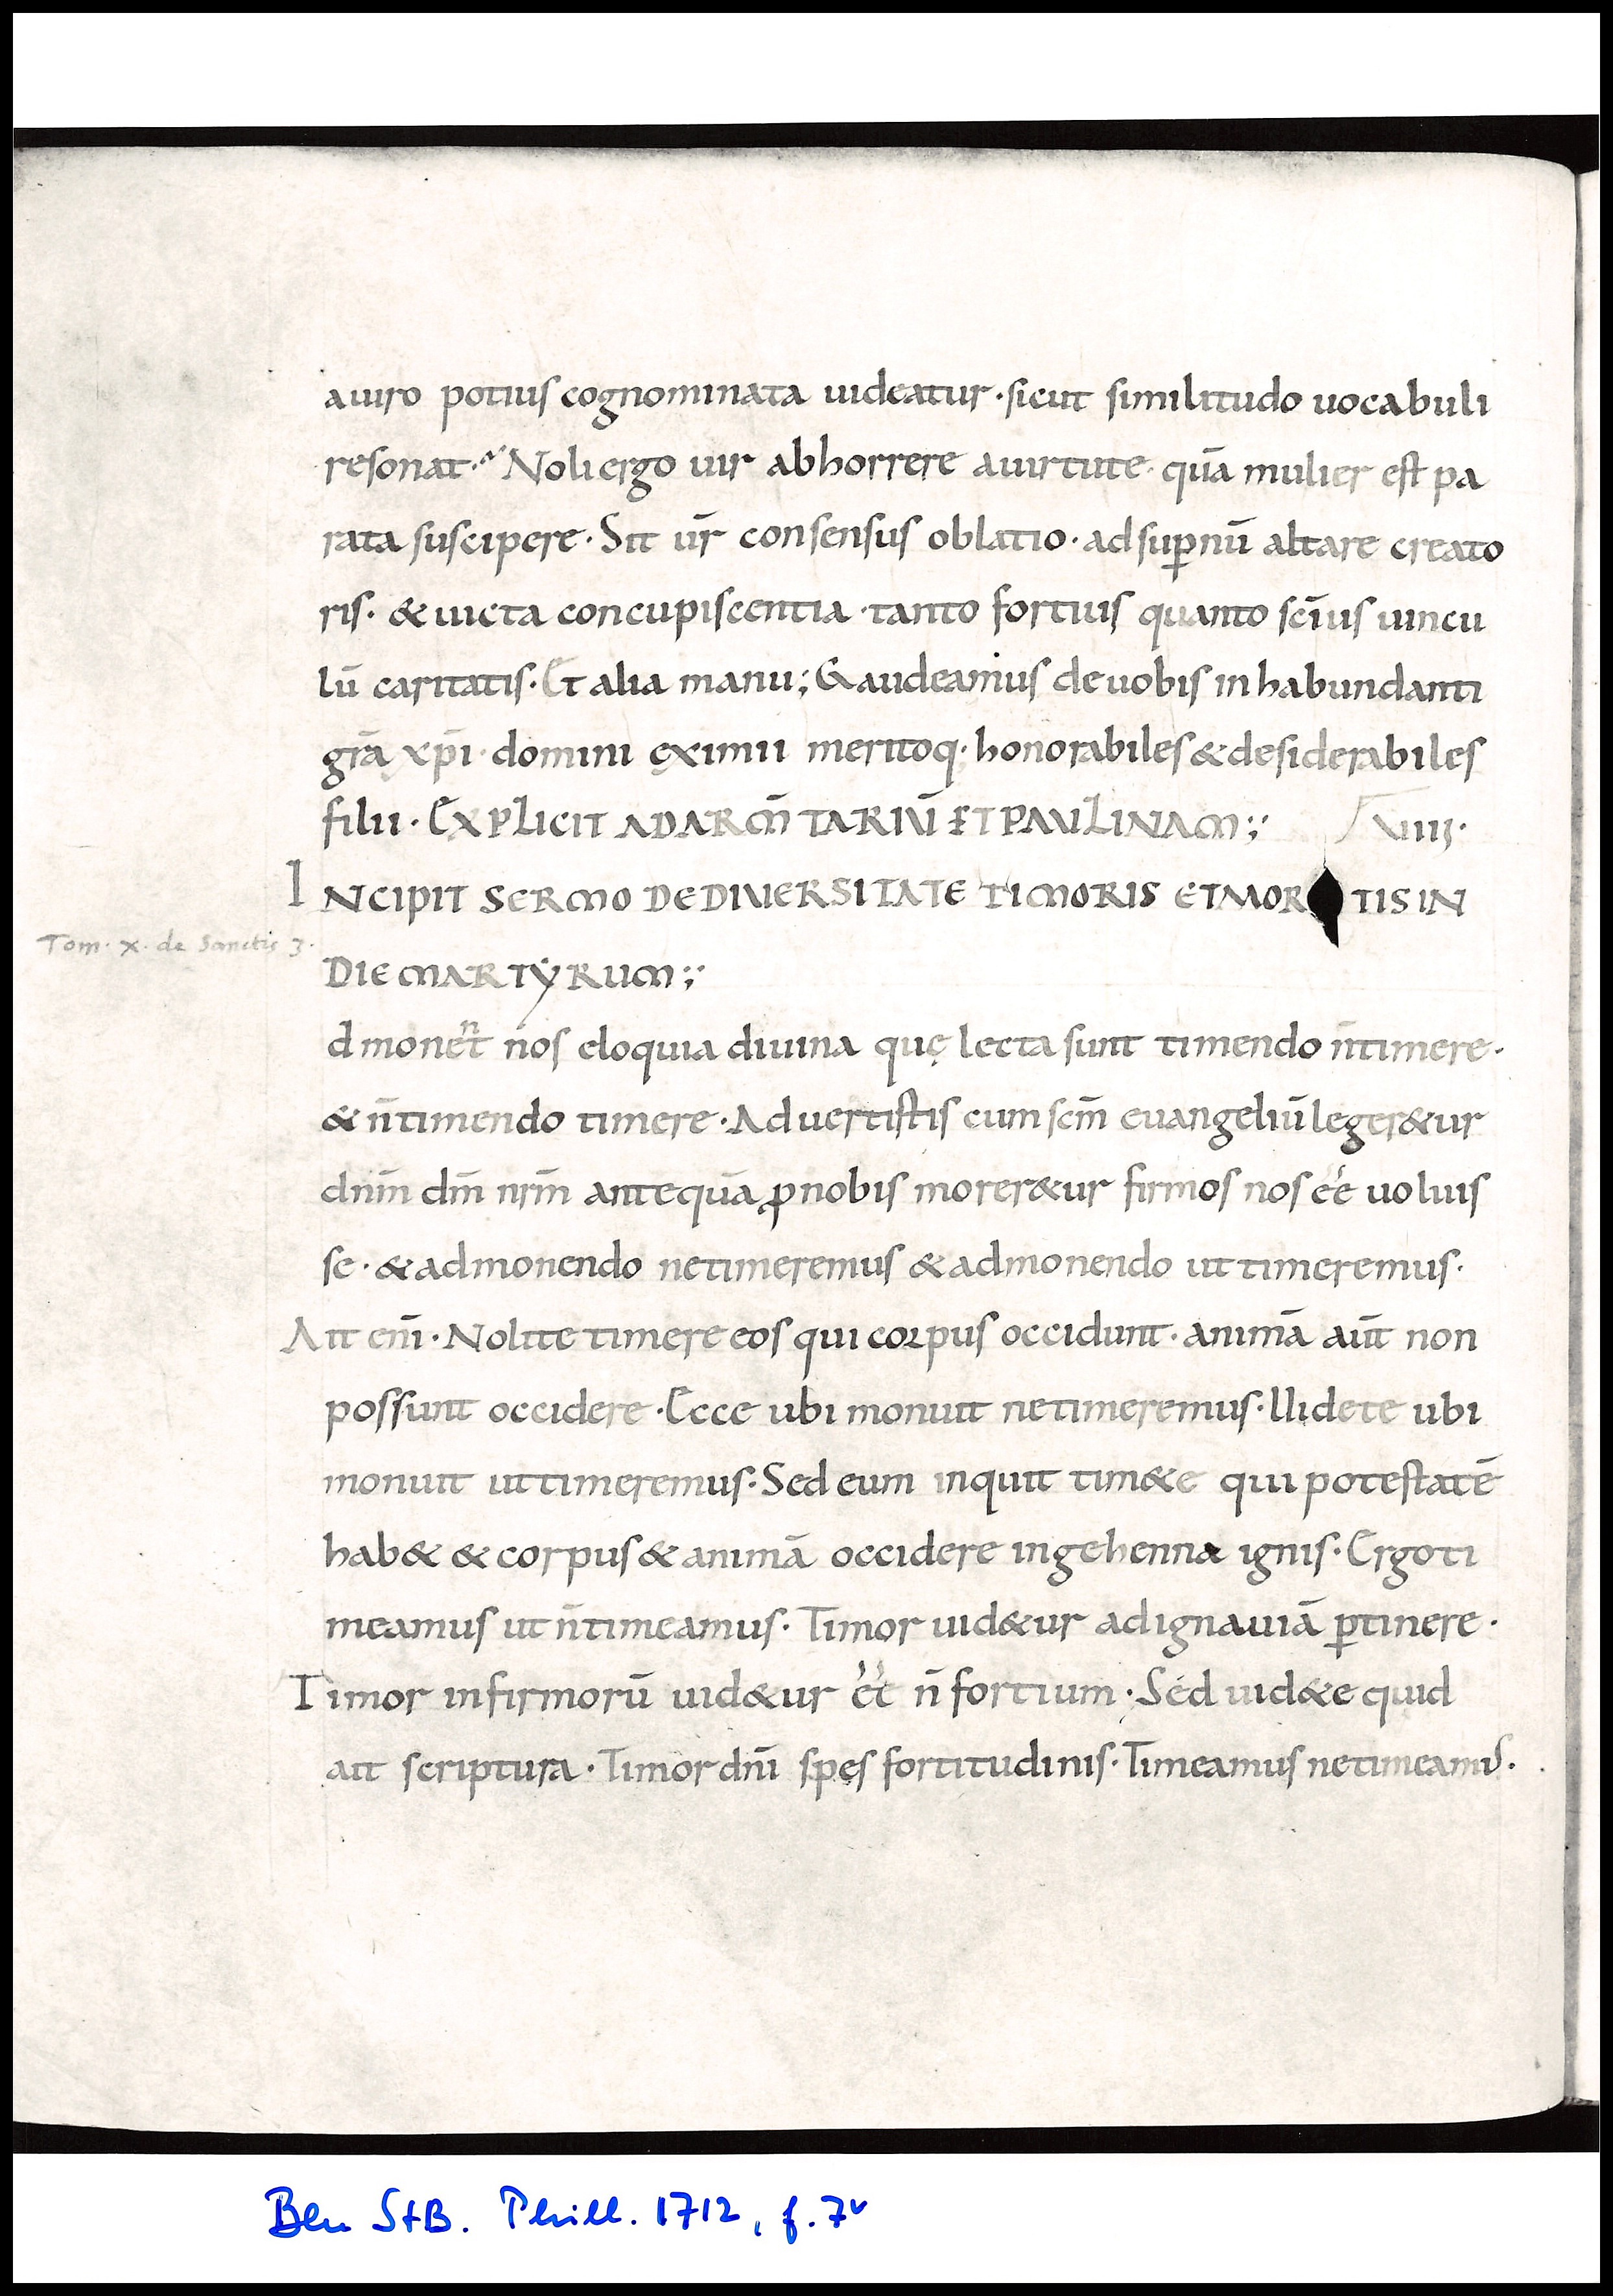 auiro potius cognominata uideatur · sicut similitudo uocabuli
resonat · Noli ergo uir abhorrere auirtute · quā mulier est pa
rata suscipere · Sit ur̄ consensus oblatio · ad suꝑnū altare creato
ris · & uicta concupiscentia · tanto fortius quanto sc̄ius uincu
lū caritatis · Et alia manu; Gaudeamus de uobis in habundanti
gr̄a xp̄i · domini eximii meritoq· honorabiles & desiderabiles
filii · EXPLICIT AD ARM̄TARIŪ ET PAULINAM;· VIIII·
INCIPIT SERMO DE DIUERSITATE TIMORIS ET MOR TIS IN
Tom. x. de Sanctis 3.
DIE MARTẎRUM;·
dmonent nos eloquia diuina quę lecta sunt timendo n̄ timere ·
& n̄ timendo timere · Aduertistis cum sc̄m euangeliū leger&ur
dn̄m dm̄ nr̄m antequā ꝓ nobis morer&ur firmos nos ee̅ uoluis
se · & admonendo ne timeremus & admonendo ut timeremus ·
Ait eni̅ · Nolite timere eos qui corpus occidunt · animā aūt non
possunt occidere · Ecce ubi monuit ne timeremus · Uidete ubi
monuit ut timeremus · Sed eum inquit tim&e qui potestatē
hab& & corpus & animā occidere in gehenna ignis · Ergo ti
meamus ut n̄ timeamus · Timor uid&ur ad ignauiā ꝑtinere ·
Timor infirmorū uid&ur eēt n̄ fortium · Sed uid&e quid
ait scriptura · Timor dn̄i spes fortitudinis · Timeamus ne timeam᾿ ·
Bln StB. Phill. 1712, f. 7v